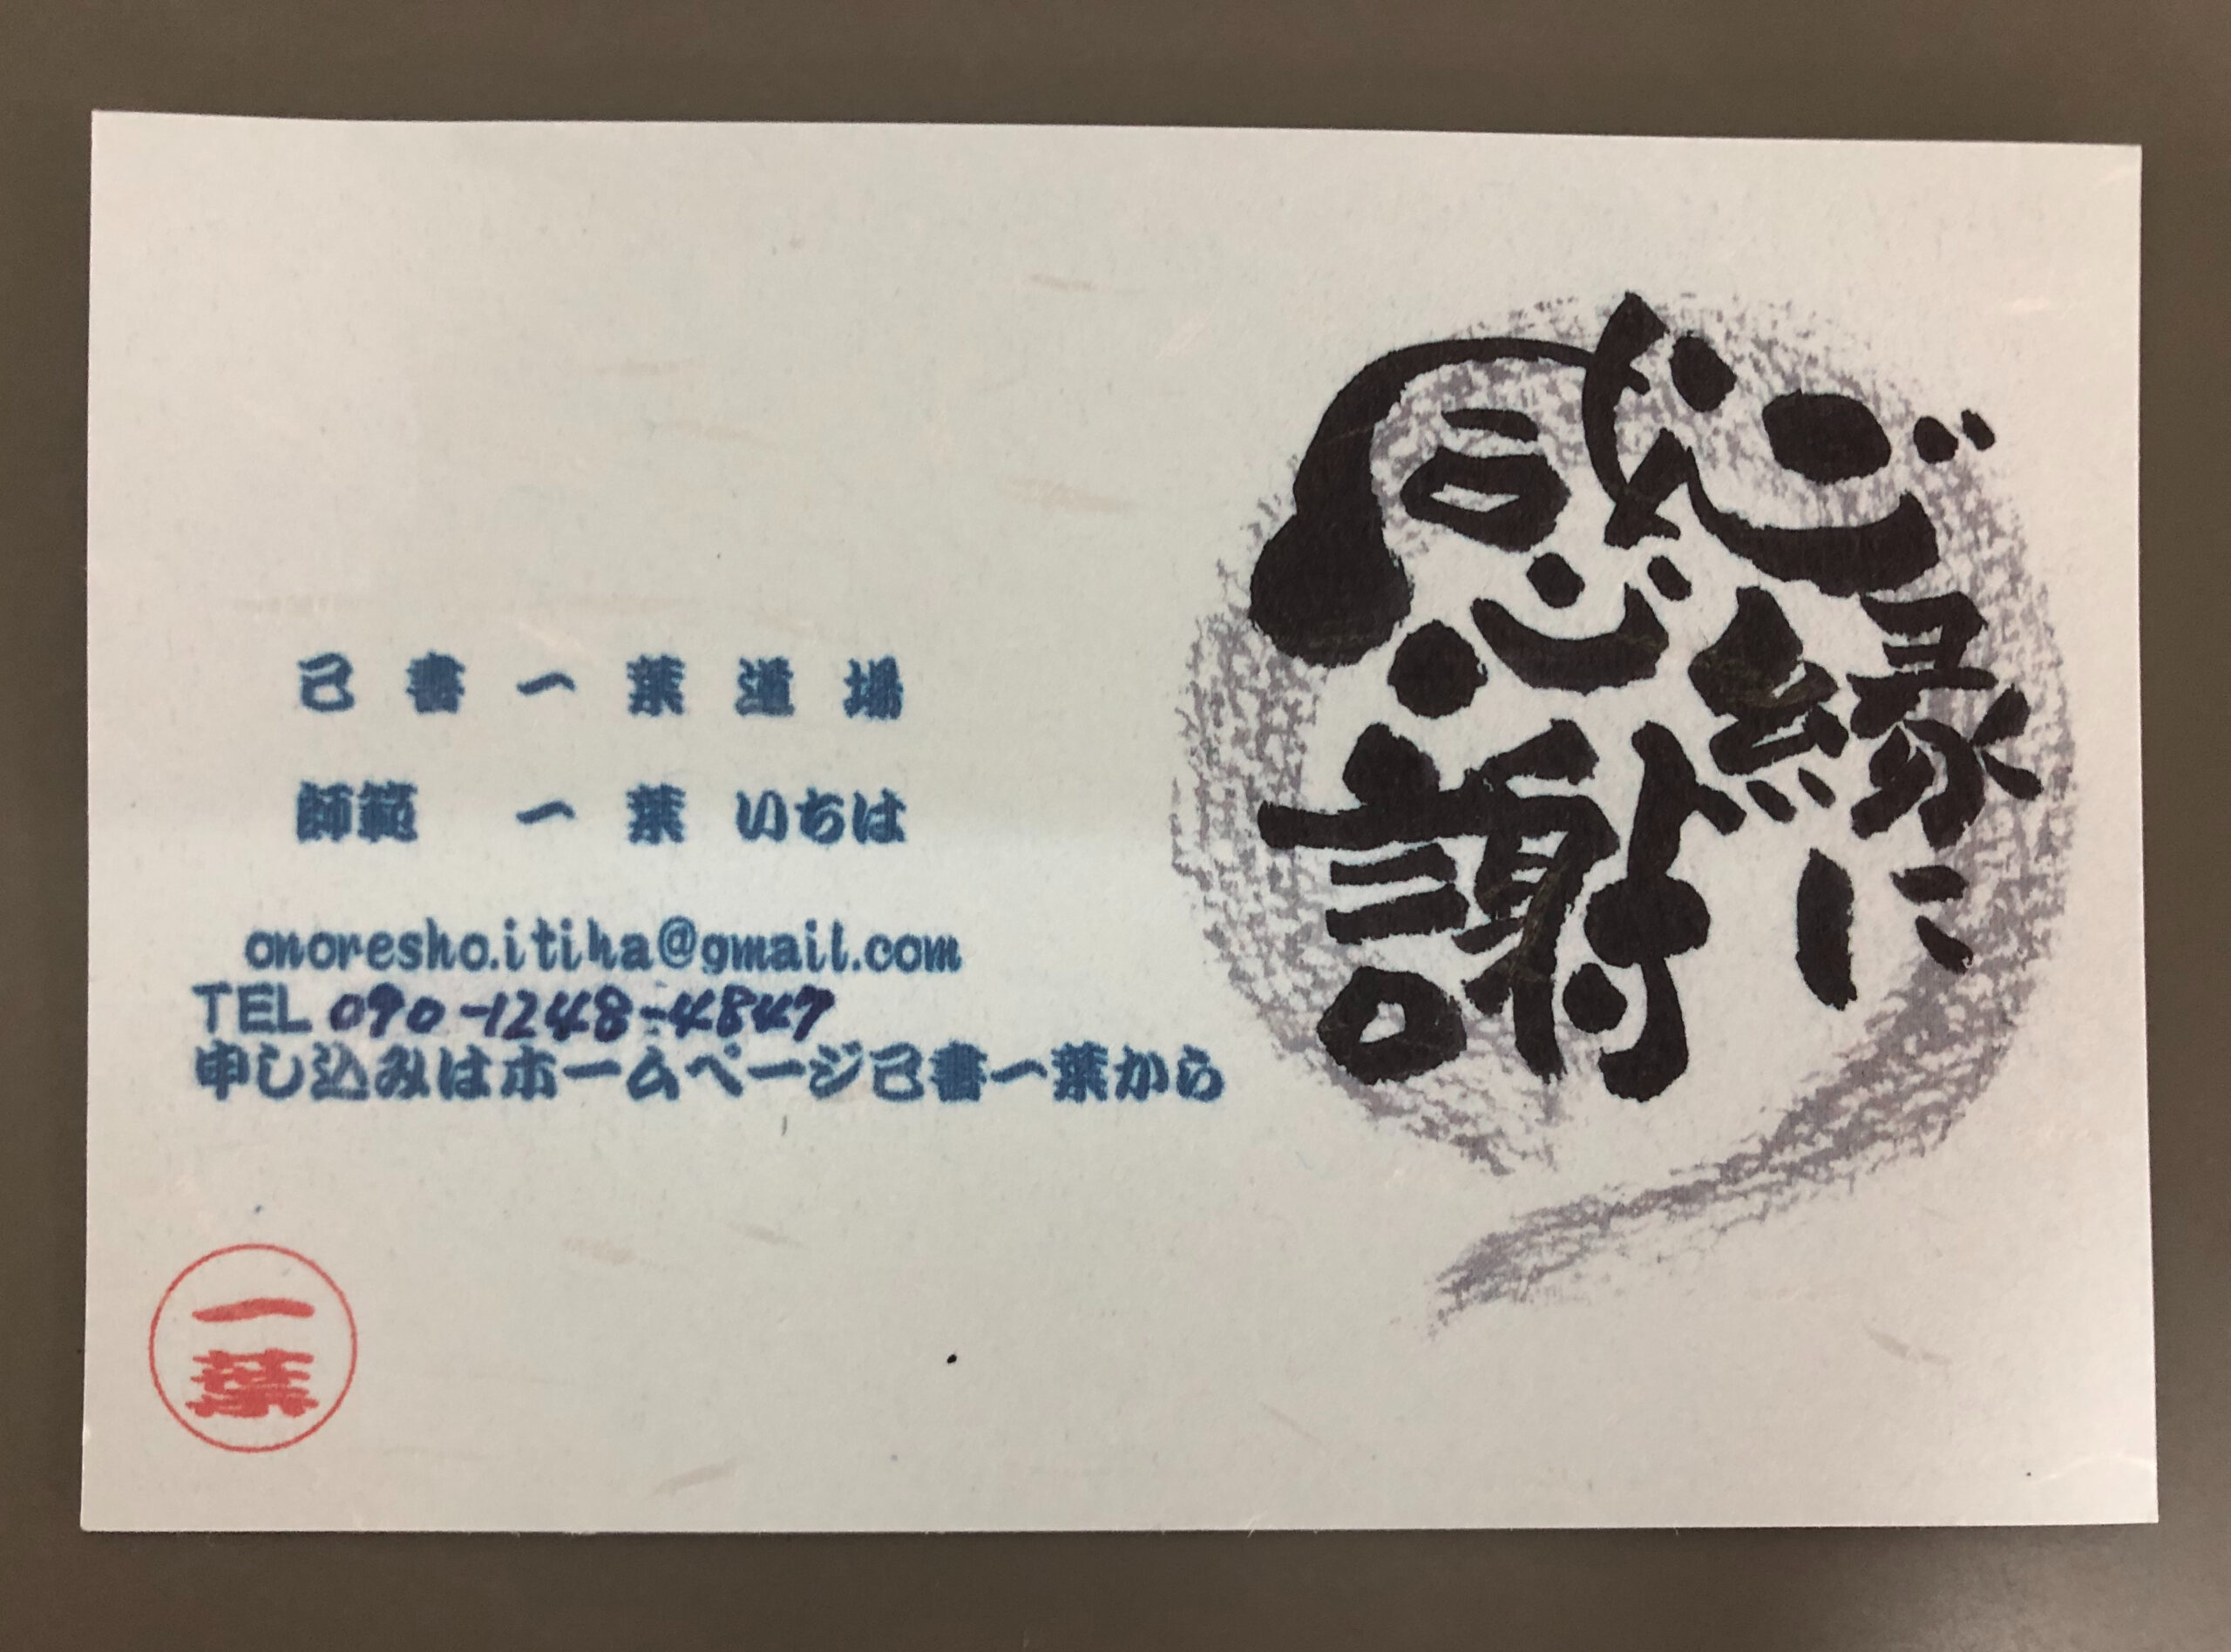 己書一葉道場
師範 一葉 いちは
onoresho.itiha@gmail.com
TEL 090-1248-4847
申し込みはホームページ己書一葉から
ご縁に
感謝
一葉